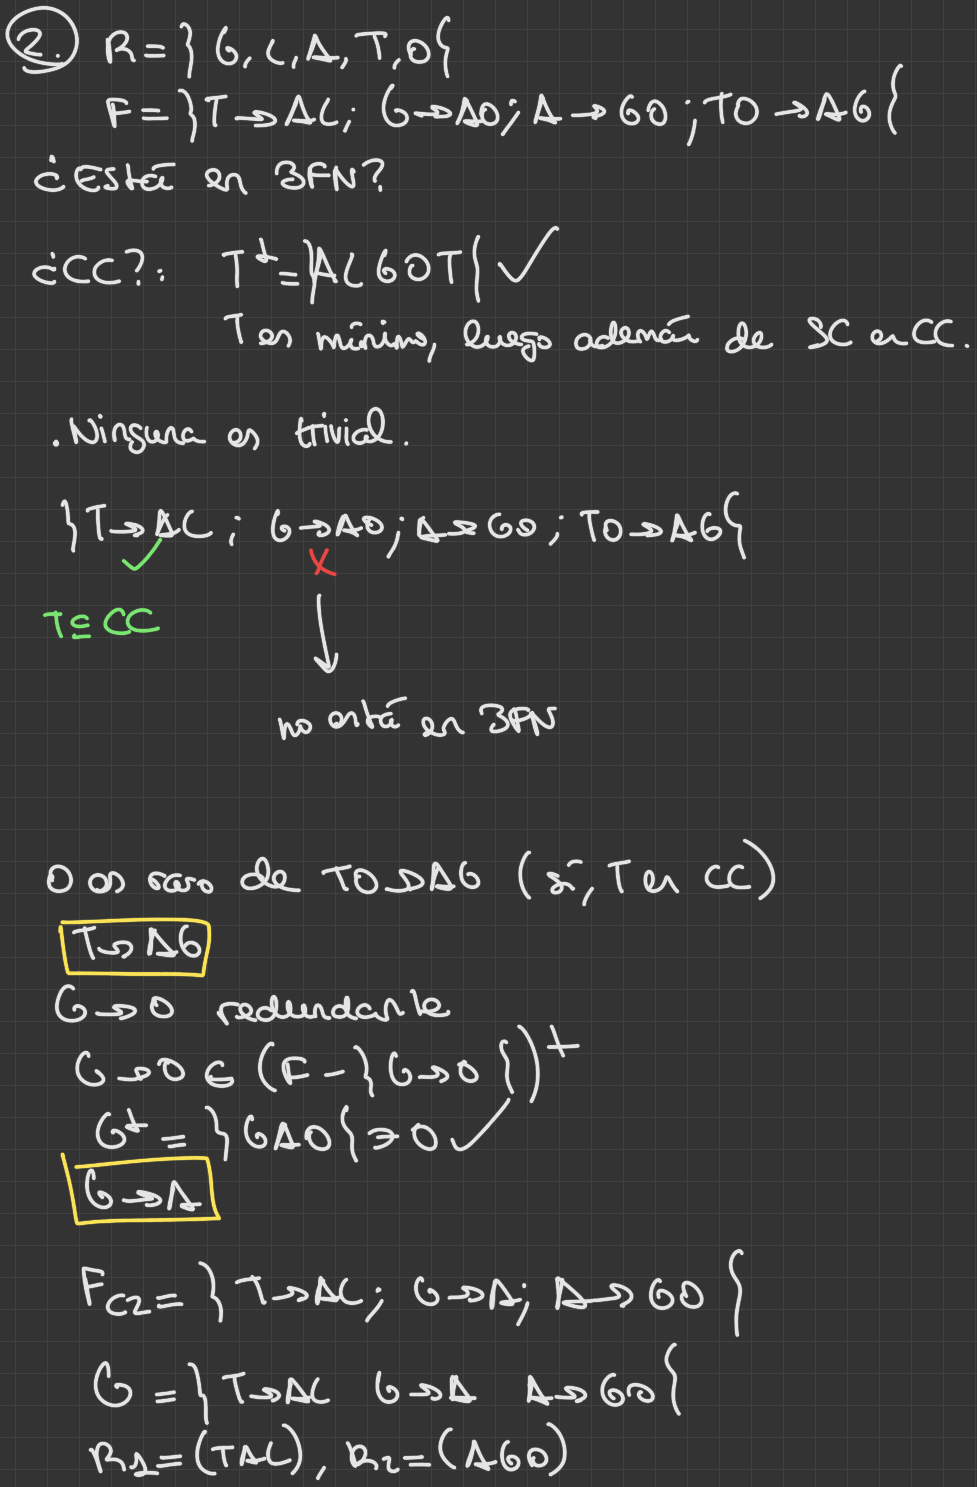 2. R = }G, C, A, T, O{
F = }T→AC; G→AO; A→GO; TO→AG{
¿Está en 3FN?
¿CC?: T⁺ = }ACGOT{ ✓
T es mínimo, luego además de SC es CC.
. Ninguna es trivial.
}T→AC; G→AO; A→GO; TO→AG{
✓ X
T ∈ CC
no está en 3FN
O es raro de TO→AG (sí, T es CC)
T→AG
G→O redundante
G→O ∈ (F-}G→O{)⁺
G⁺ = }GAO{ ∋ O ✓
G→A
FC2 = }T→AC; G→A; A→GO{
G = }T→AC G→A A→GO{
R1 = (TAC), R2 = (AGO)